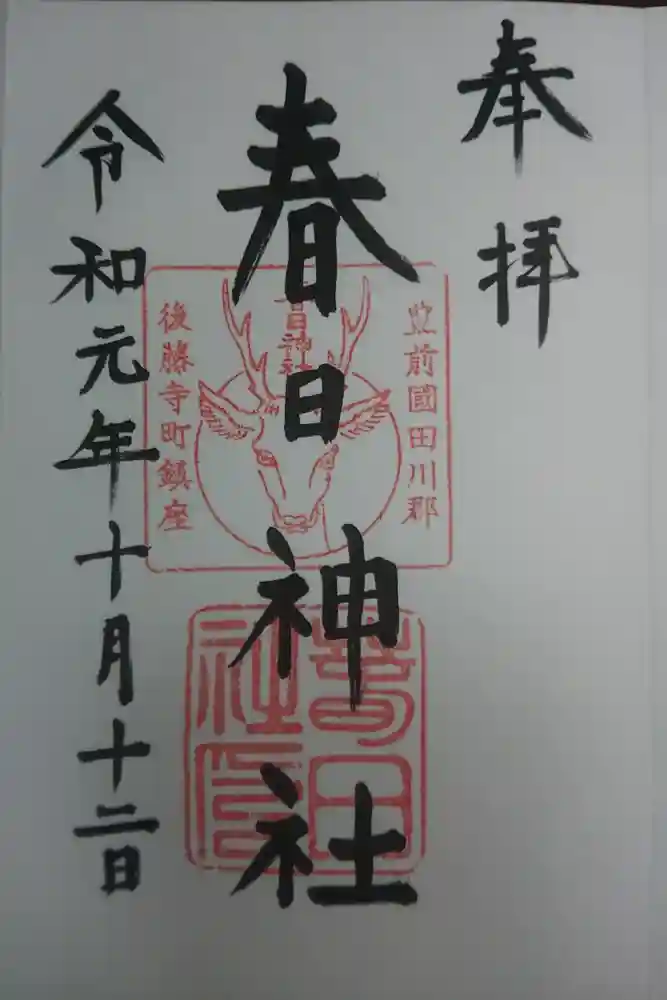 奉拝
豊前國田川郡
春日神社
春日神社
後勝寺町鎮座
令和元年十月十二日
春日社印